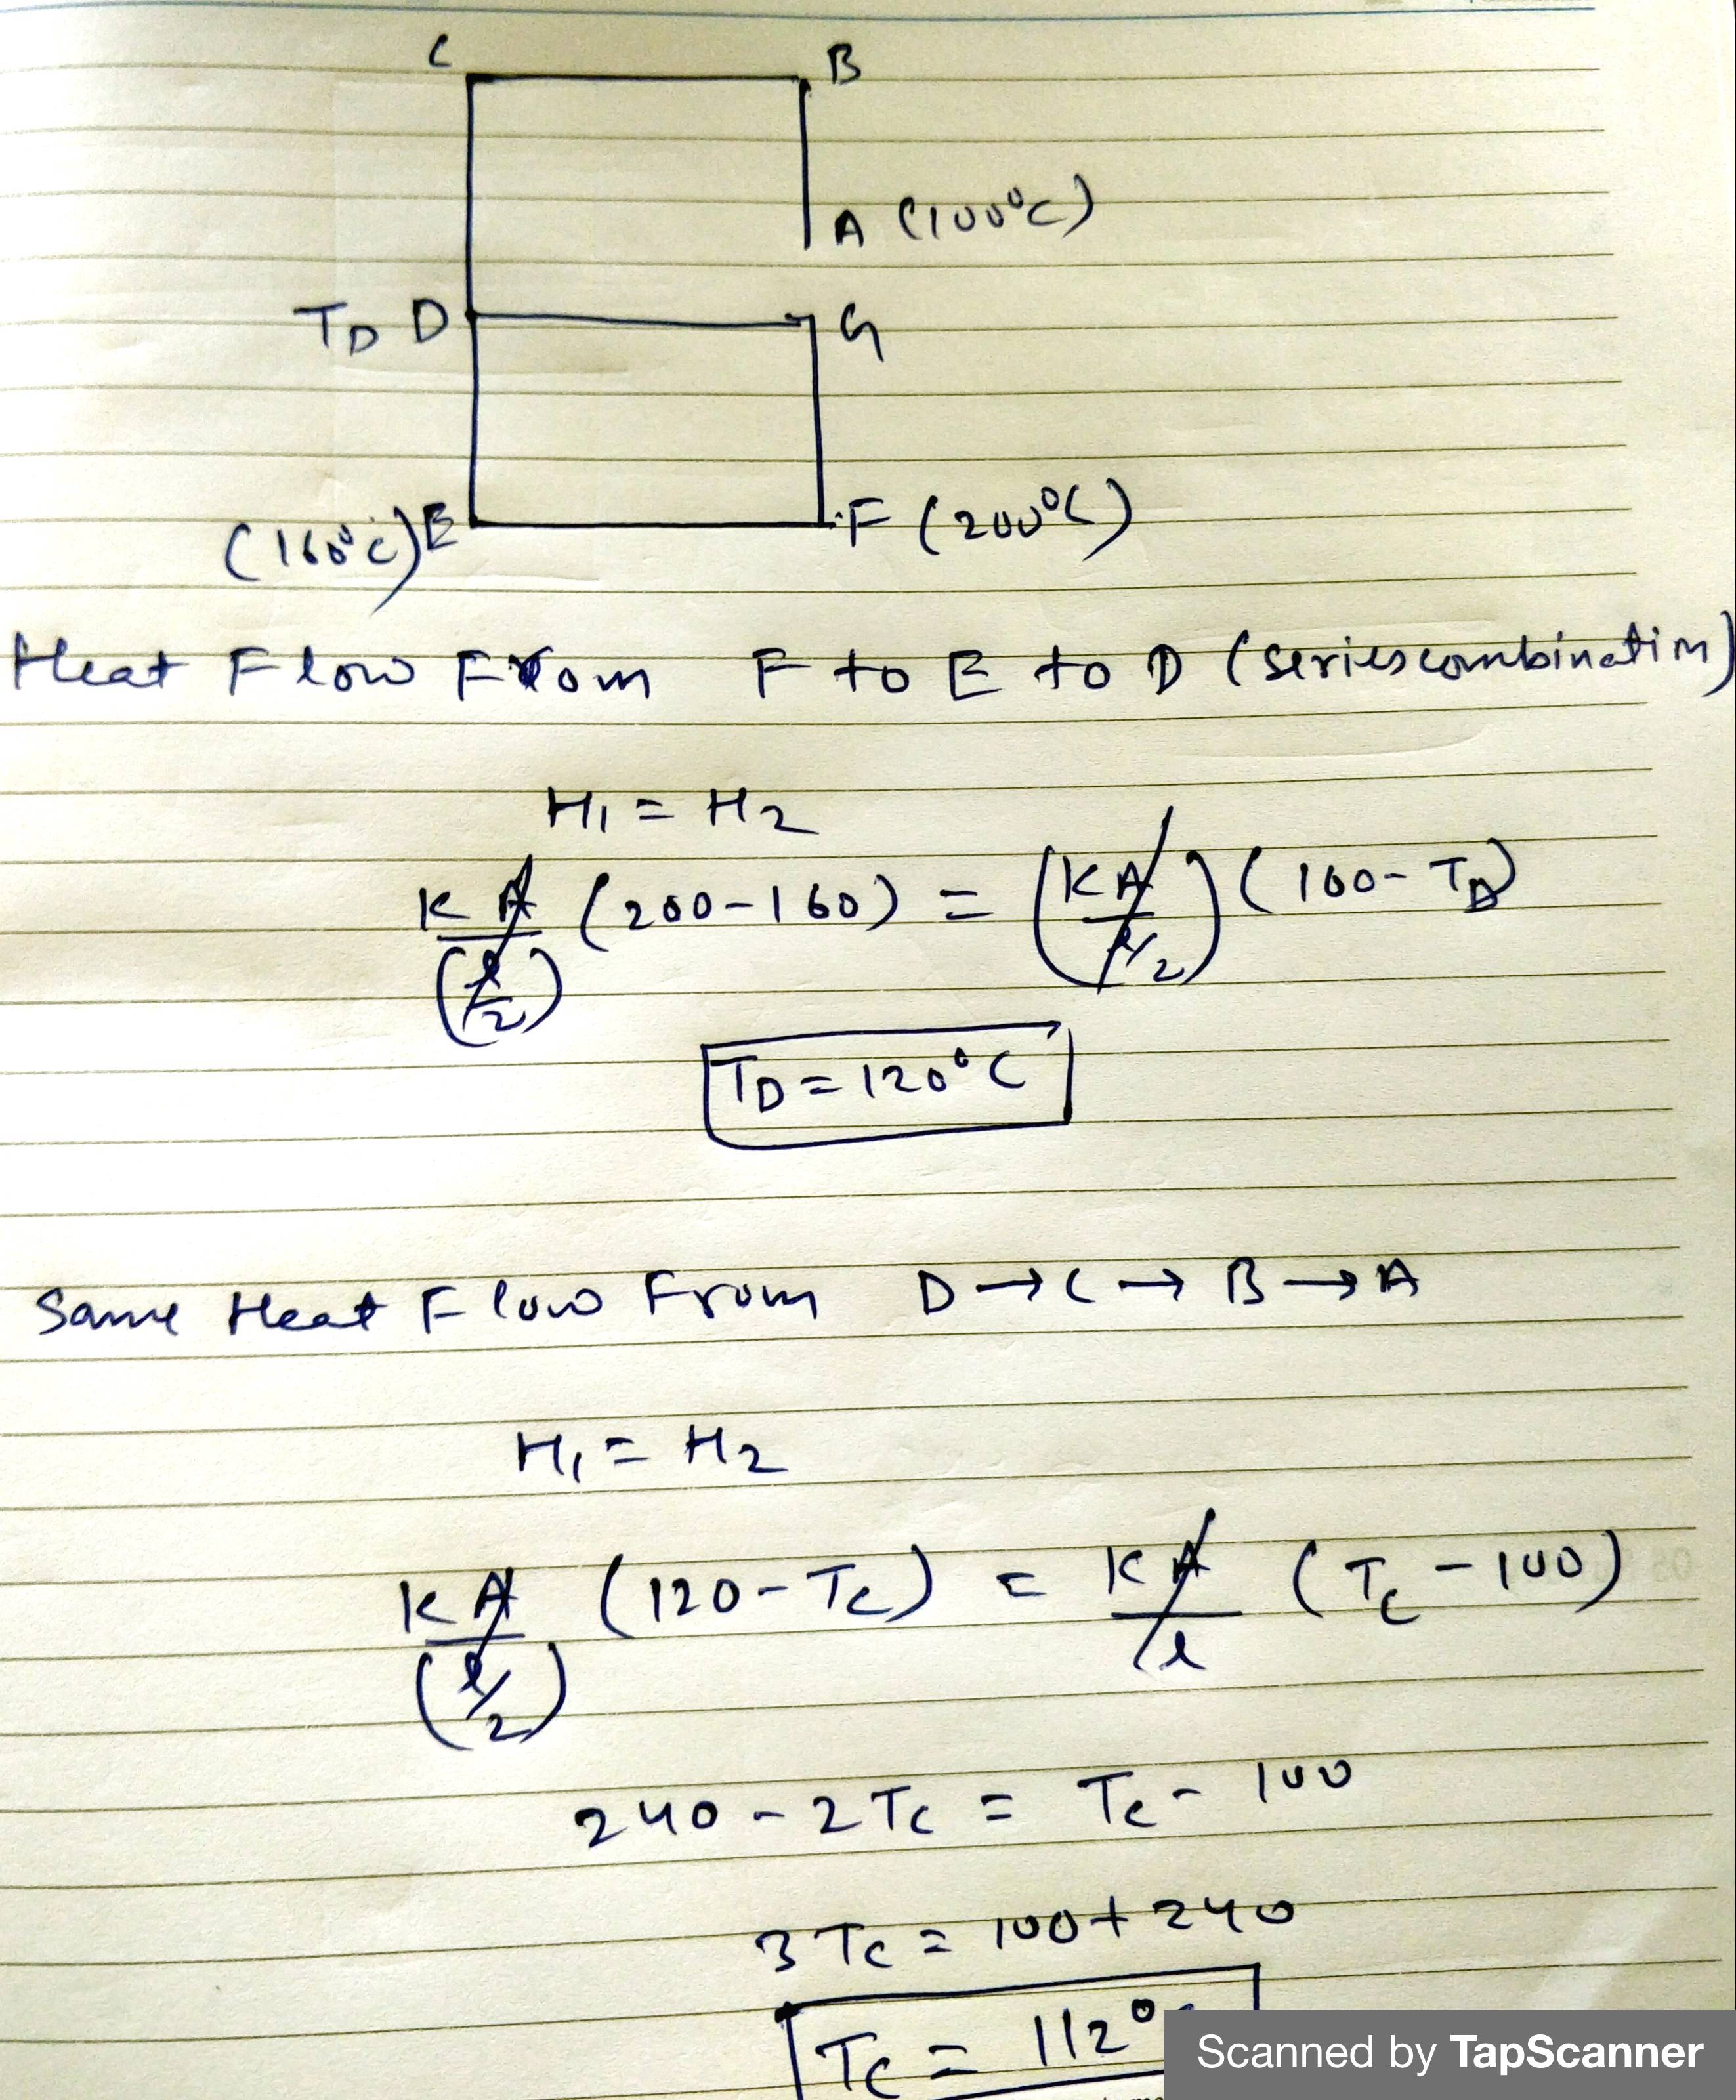 C B
A (100°C)
TD D G
(160°C) E F (200°C)
Heat Flow From F to E to D (series combination)
H1 = H2
KA/(l/2) (200-160) = (KA/(l/2)) (160-TD)
TD = 120°C
Same Heat Flow From D → C → B → A
H1 = H2
KA/(l/2) (120-Tc) = KA/l (Tc-100)
240 - 2Tc = Tc - 100
3Tc = 100 + 240
Tc = 112°
Scanned by TapScanner